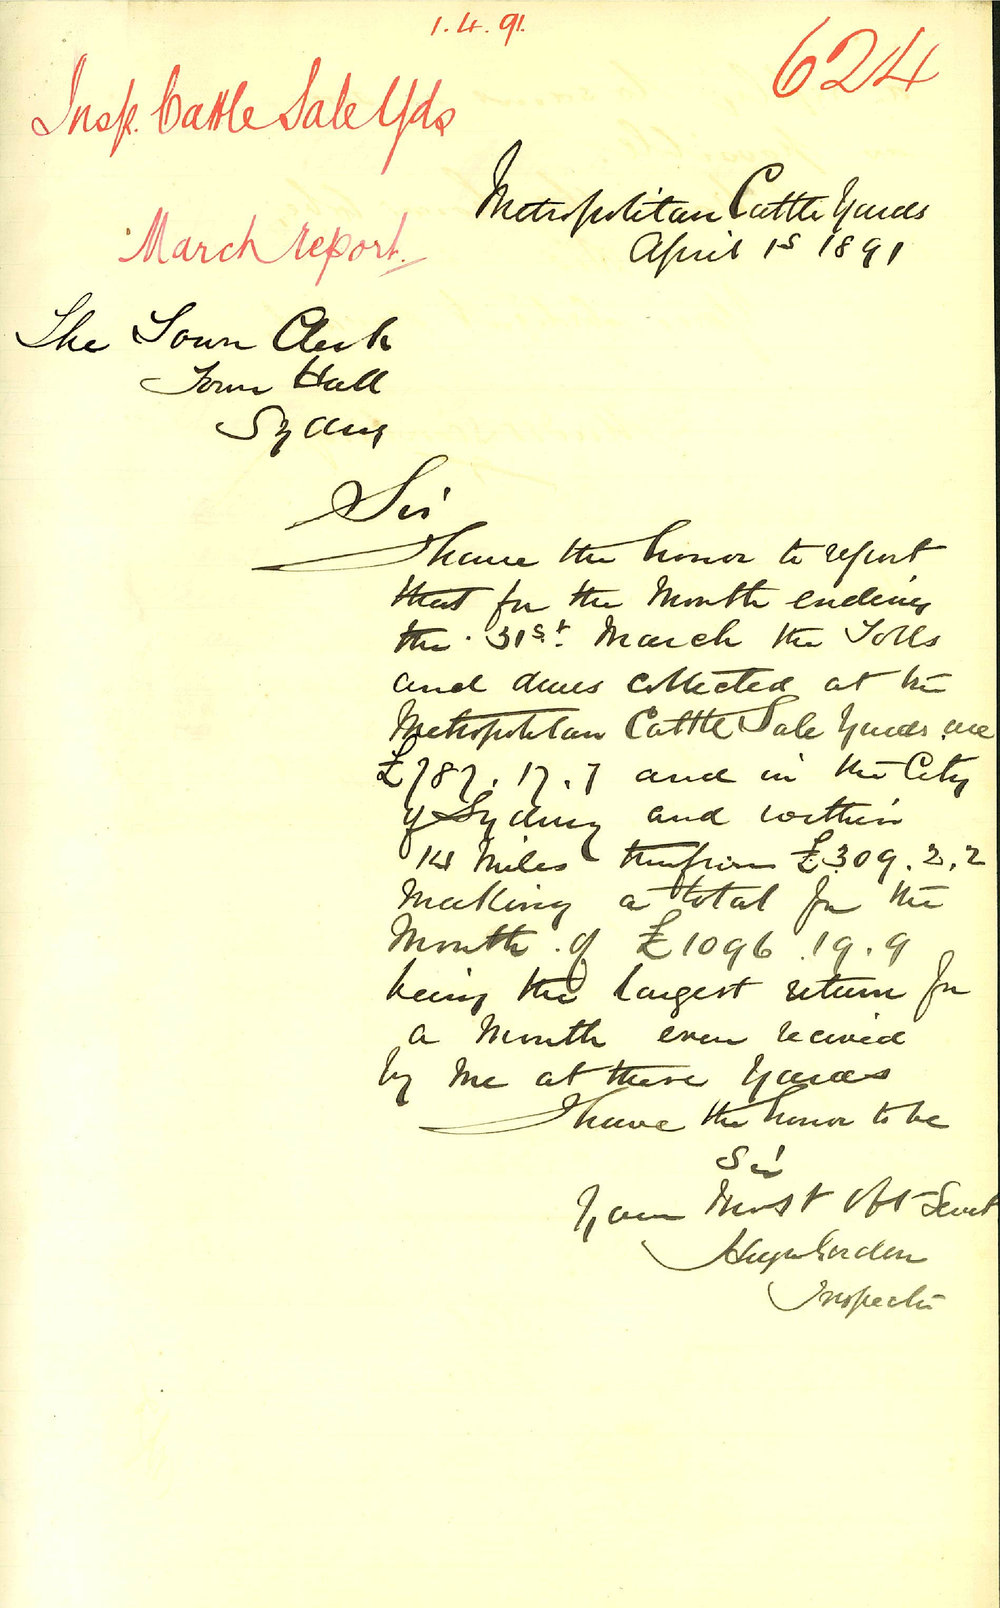 1.4.91.
624
Insp. Cattle Sale Yds
March report.
Metropolitan Cattle Yards
April 1s 1891
The Town Clerk
Town Hall
Sydney
Sir
I have the honor to report
that for the Month ending
the 31st. March the Tolls
and dues collected at the
Metropolitan Cattle Sale Yards are
£787.17.7 and in the City
of Sydney and within
14 Miles therefrom £309.2.2
Making a total for the
Month of £1096.19.9
being the largest return for
a Month ever received
by Me at these Yards
I have the honor to be
Sir
Your Most Obt Servt
Gordon
Inspector